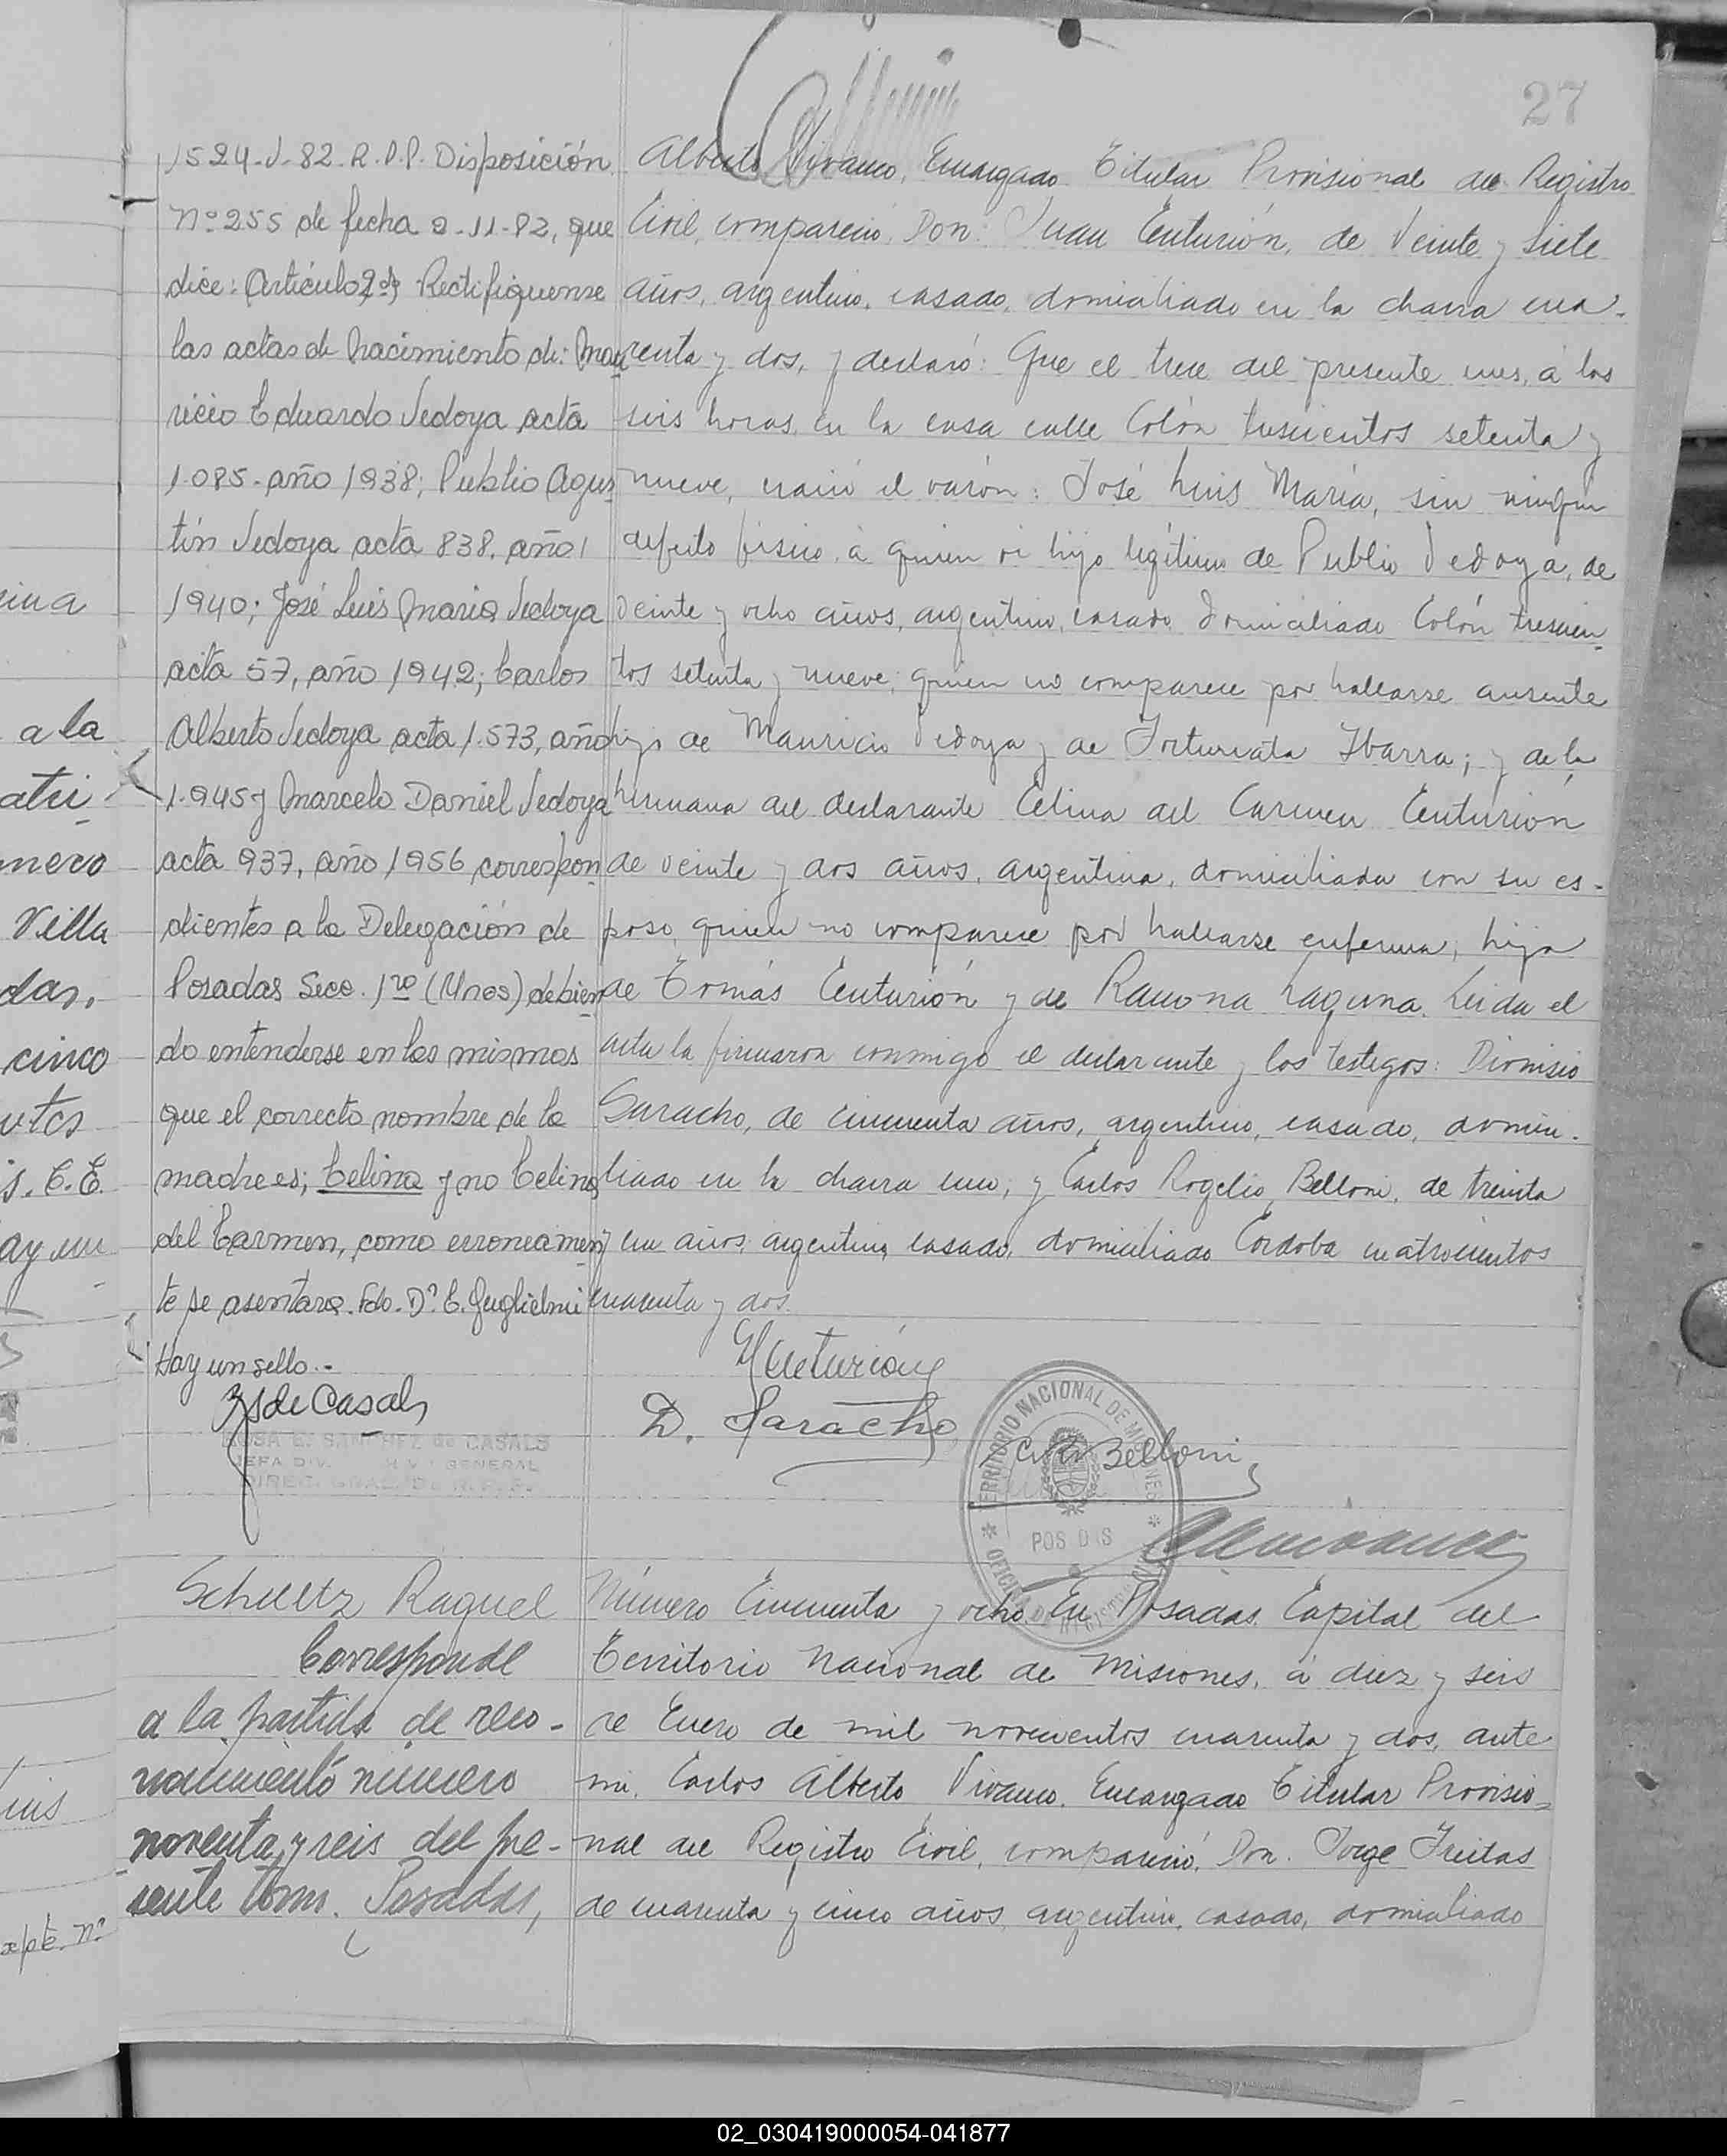 27
1524-V-82-R.P.P. Disposición
Nº 255 de fecha 2-11-82, que
dice: Artículo 2do) Rectifiquense
las actas de nacimiento de: Mau
ricio Eduardo Vedoya acta
1.085- año 1938; Publio Agus
tín Vedoya acta 838, año
1940; José Luis María Vedoya
acta 57, año 1942; Carlos
Alberto Vedoya acta 1.573, año
1.945 y Marcelo Daniel Vedoya
acta 937, año 1956 correspon
dientes a la Delegación de
Posadas Secc. 1ra (Unos) debien
do entenderse en los mismos
que el correcto nombre de la
madre es; Celina y no Celina
del Carmen, como erroneamen
te se asentara. Fdo. Dn. E. Guglielmi
Hay un sello.-
RSdeCasals
ROSA E. SANCHEZ de CASALS
JEFA DIV. GENERAL
DIREC. GRAL. DE R. P. P.
Alberto Vivanco, Encargado Titular Provisional del Registro
Civil, compareció, Don: Juan Centurión, de veinte y siete
años, argentino, casado, domiciliado en la chacra cua-
renta y dos, y declaró: Que el trece del presente mes, á las
seis horas, en la casa calle Colón trescientos setenta y
nueve, nació el varón: José Luis María, sin ningun
defecto físico, á quien vi hijo legítimo de Publio Vedoya, de
veinte y ocho años, argentino, casado, domiciliado Colón trescien-
tos setenta y nueve, quien no comparece por hallarse ausente
hijo de Mauricio Vedoya y de Fortunata Ibarra; y de la
hermana del declarante Celina del Carmen Centurión
de veinte y dos años, argentina, domiciliada con su es-
poso, quien no comparece por hallarse enferma, hija
de Tomás Centurión y de Ramona Laguna. Leida el
acta la firmaron conmigo el declarante y los testigos: Dionisio
Saracho, de cincuenta años, argentino, casado, domici-
liado en la chacra uno, y Carlos Rogelio Belloni, de treinta
y un años, argentino, casado, domiciliado Córdoba cuatrocientos
cuarenta y dos.
JCenturión
D. Saracho
Belloni
TERRITORIO NACIONAL DE MISIONES
POSADAS
Schultz Raquel
Corresponde
a la partida de reco-
nocimiento número
noventa y seis del pre-
sente tomo. Posadas,
Número Cincuenta y ocho. En Posadas, Capital del
Territorio Nacional de Misiones, á diez y seis
de Enero de mil novecientos cuarenta y dos, ante
mi, Carlos Alberto Vivanco, Encargado Titular Provisio-
nal del Registro Civil, compareció, Don. Jorge Freitas
de cuarenta y cinco años, argentino, casado, domiciliado
ina
a la
ati-
nero
Villa
das,
cinco
utos
is. C.E.
ay un
uis
expte. nº
02_030419000054-041877